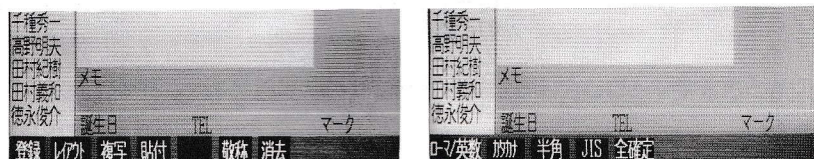 千種秀一
高野明夫
田村紀樹
田村義和
徳永俊介
メモ
誕生日 TEL マーク
登録 レイアウト 複写 貼付 敬称 消去
千種秀一
高野明夫
田村紀樹
田村義和
徳永俊介
メモ
誕生日 TEL マーク
ローマ/英数 カタカナ 半角 JIS 全確定